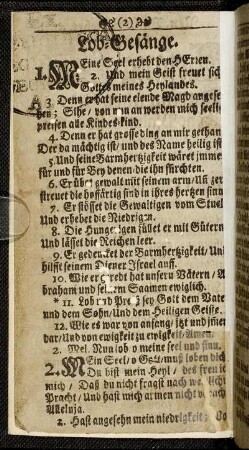 (2)
Lob-Gesänge.
1. Meine Seel erhebt den HErren.
2. Und mein Geist freuet sich
Gottes meines Heylandes.
3 Denn er hat seine elende Magd angese
hen; Sihe, von nun an werden mich seelig
preisen alle Kindes-kind.
4. Denn er hat grosse ding an mir gethan
Der da mächtig ist, und des Name heilig ist
5. Und seine Barmhertzigkeit wäret immer
für und für Bey denen die ihn fürchten.
6. Er übet gewalt mit seinem arm/Un zer
streuet die hoffärtig sind in ihres hertzen sinn
7. Er stösset die Gewaltigen vom Stuel
Und erhebet die Niedrigen.
8. Die Hungerigen füllet er mit Gütern
Und lässet die Reichen leer.
9. Er gedencket der Barmhertzigkeit/ Und
hilfft seinem Diener Israel auff.
10. Wie er geredt hat unsern Vätern/ A
braham und seinem Saamen ewiglich.
* 11. Lob und Preiß sey Gott dem Vate
und dem Sohn/Und dem Heiligen Geiste.
12. Wie es war von anfang/ jtzt und
dar/ Und von ewigkeit zu ewigkeit/Amen.
2. Mel. Nun lob o meine seel und sinn.
2. MEin Seel/ o Gott/ muß loben dich
Du bist mein Heyl/ des freu ic
mich / Daß du nicht fragst nach weltlicher
Pracht/ Und hast mich armen nicht ver
Alleluja.
2. Hast angesehn mein niedrigkeit;